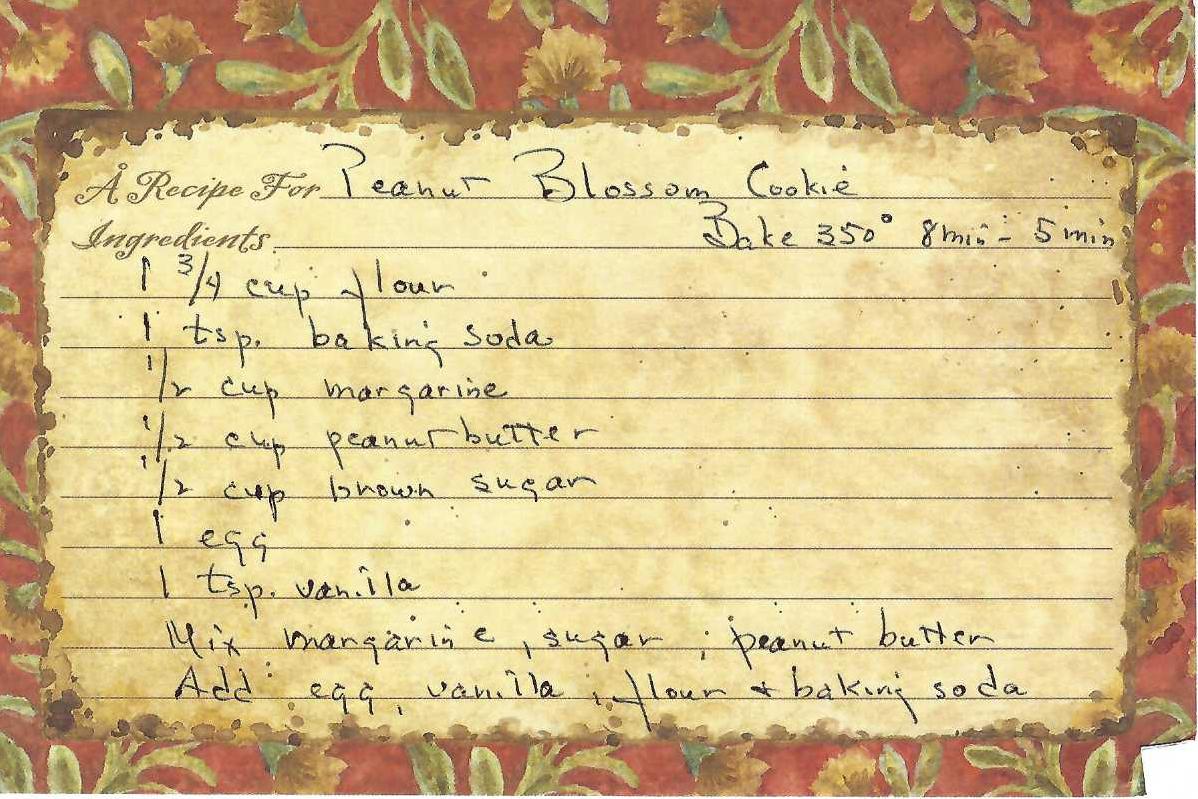 A Recipe For Peanut Blossom Cookie
Ingredients Bake 350° 8min - 5 min
1 3/4 cup flour
1 tsp. baking soda
1/2 cup margarine
1/2 cup peanut butter
1/2 cup brown sugar
1 egg
1 tsp. vanilla
Mix margarine, sugar, peanut butter
Add egg, vanilla, flour + baking soda